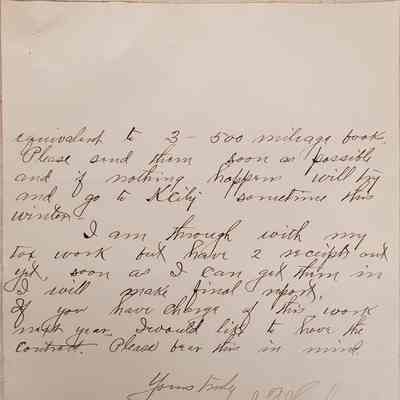 equivalent to 3 - 500 mileage book.
Please send them soon as possible
and if nothing happens will try
and go to K City sometime this
winter -
I am through with my
tax work but have 2 receipts out
yet, soon as I can get them in
I will make final report,
If you have charge of this work
next year, I would like to have the
contract. Please bear this in mind
Yours truly